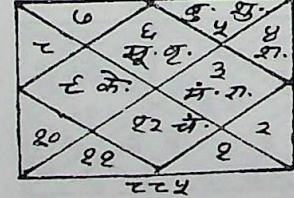 ७ ६ बु. शु. ५ ४ श.
८ सू.
९ के. ३ मं. रा.
१० १२ चं. २
११ १
८८५